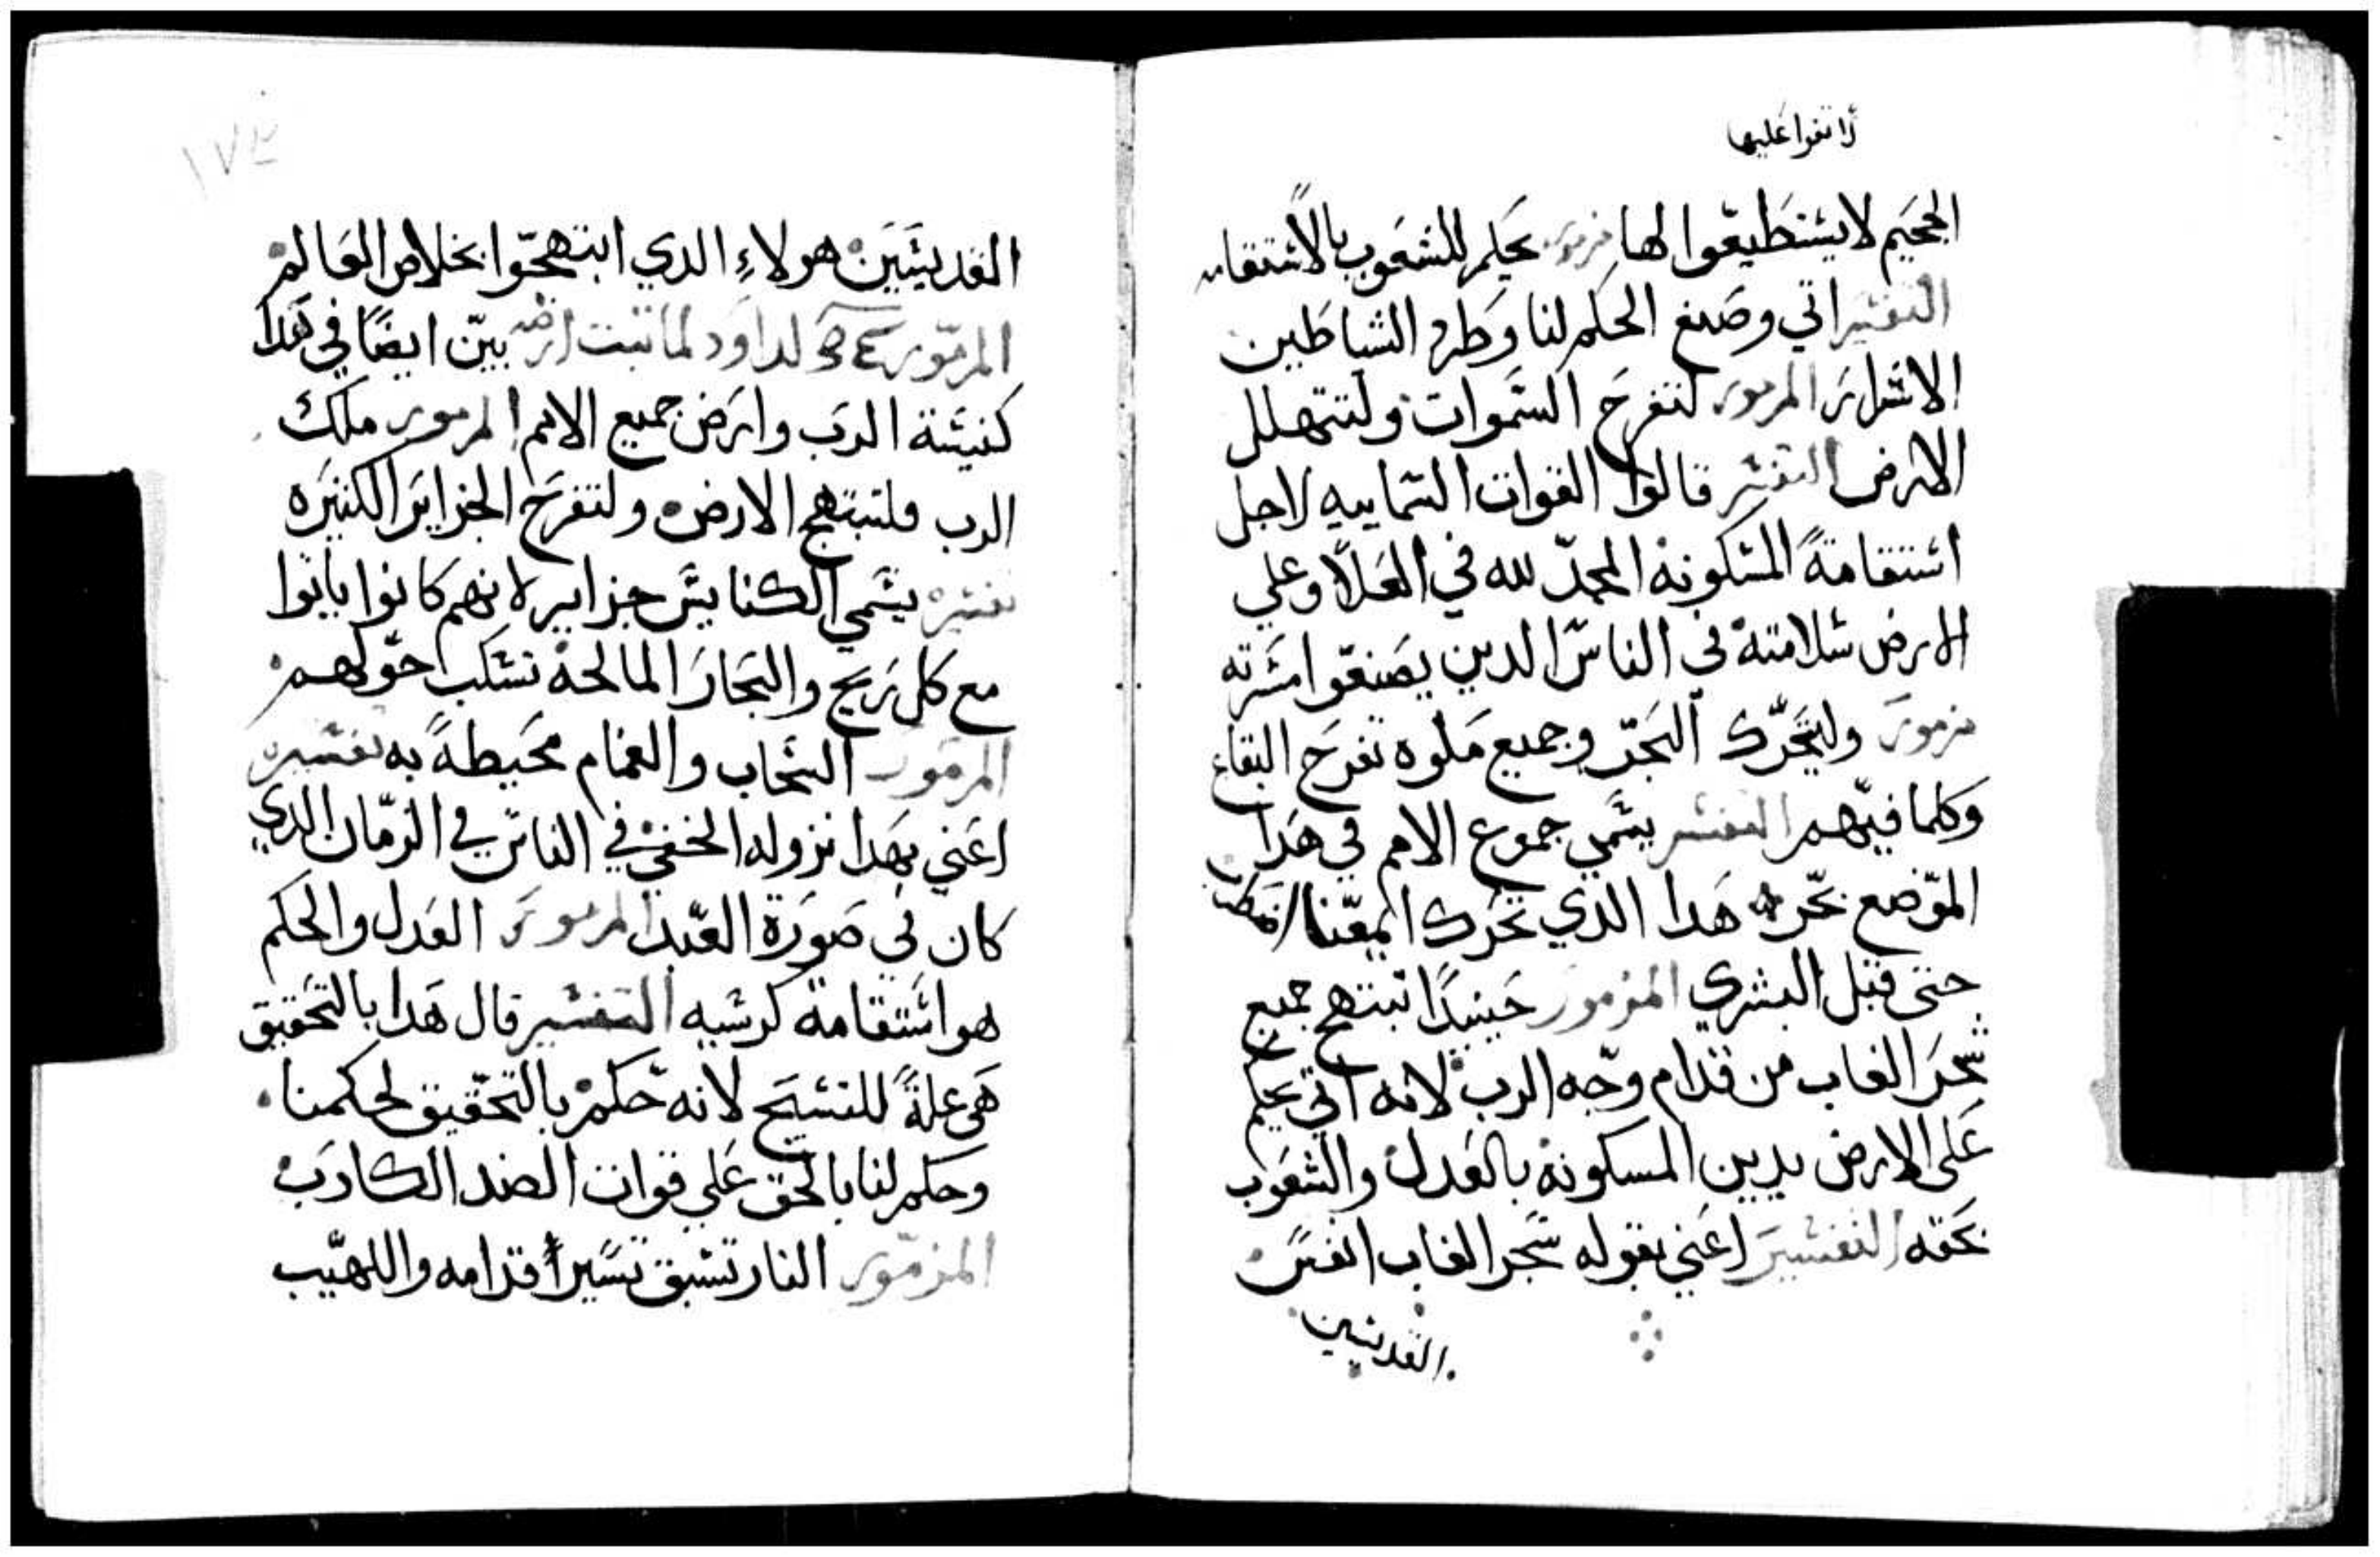 لا تقوا عليها
الجحيم لا يستطيعوا لها مزمور يحكم للشعوب بالاستقامه
التفسير اتي وصنع الحكم لنا وطرد الشياطين
الاشرار المزمور لتفرح السموات ولتتهلل
الارض التفسير قالوا القوات السماييه لاجل
استقامة المسكونه المجد لله في العلا وعلي
الارض سلامته في الناس الدين يصنعوا مسرته
مزمور وليتحرك البحر وجميع ملوه تفرح البقاع
وكلما فيهم التفسير يسمي جموع الامم في هدا
الموضع بحر هدا الدي تحرك
حتي قبل البشري المزمور حينيدا تبتهج جميع
شجر الغاب من قدام وجه الرب لانه اتي يحكم
علي الارض يدين المسكونه بالعدل والشعوب
بحقه التفسير اعني بقوله شجر الغاب انفس
القديسين
١٧٤
القديسين هولاء الدي ابتهجوا بخلاص العالم
المزمور لداود لما تبت ارضه بين ايضا في هدا
كنيسة الرب وارض جميع الامم المزمور ملك
الرب فلتبتهج الارض ولتفرح الجزاير الكثيره
تفسيره يسمي الكنايس جزاير لانهم كانوا ياتوا
مع كل ريح والبحار المالحة تسكب حولهم
المزمور السحاب والغمام محيطة به تفسيره
اعني بهدا نزوله الخفي في الناس في الزمان الدي
كان في صورة العبد المزمور العدل والحكم
هو استقامة كرسيه التفسير قال هدا بالتحقيق
هي علة للتسبيح لانه حكم بالتحقيق لحكمنا
وحكم لنا بالحق علي قوات الضد الكادب
المزمور النار تسبق تسير قدامه واللهيب